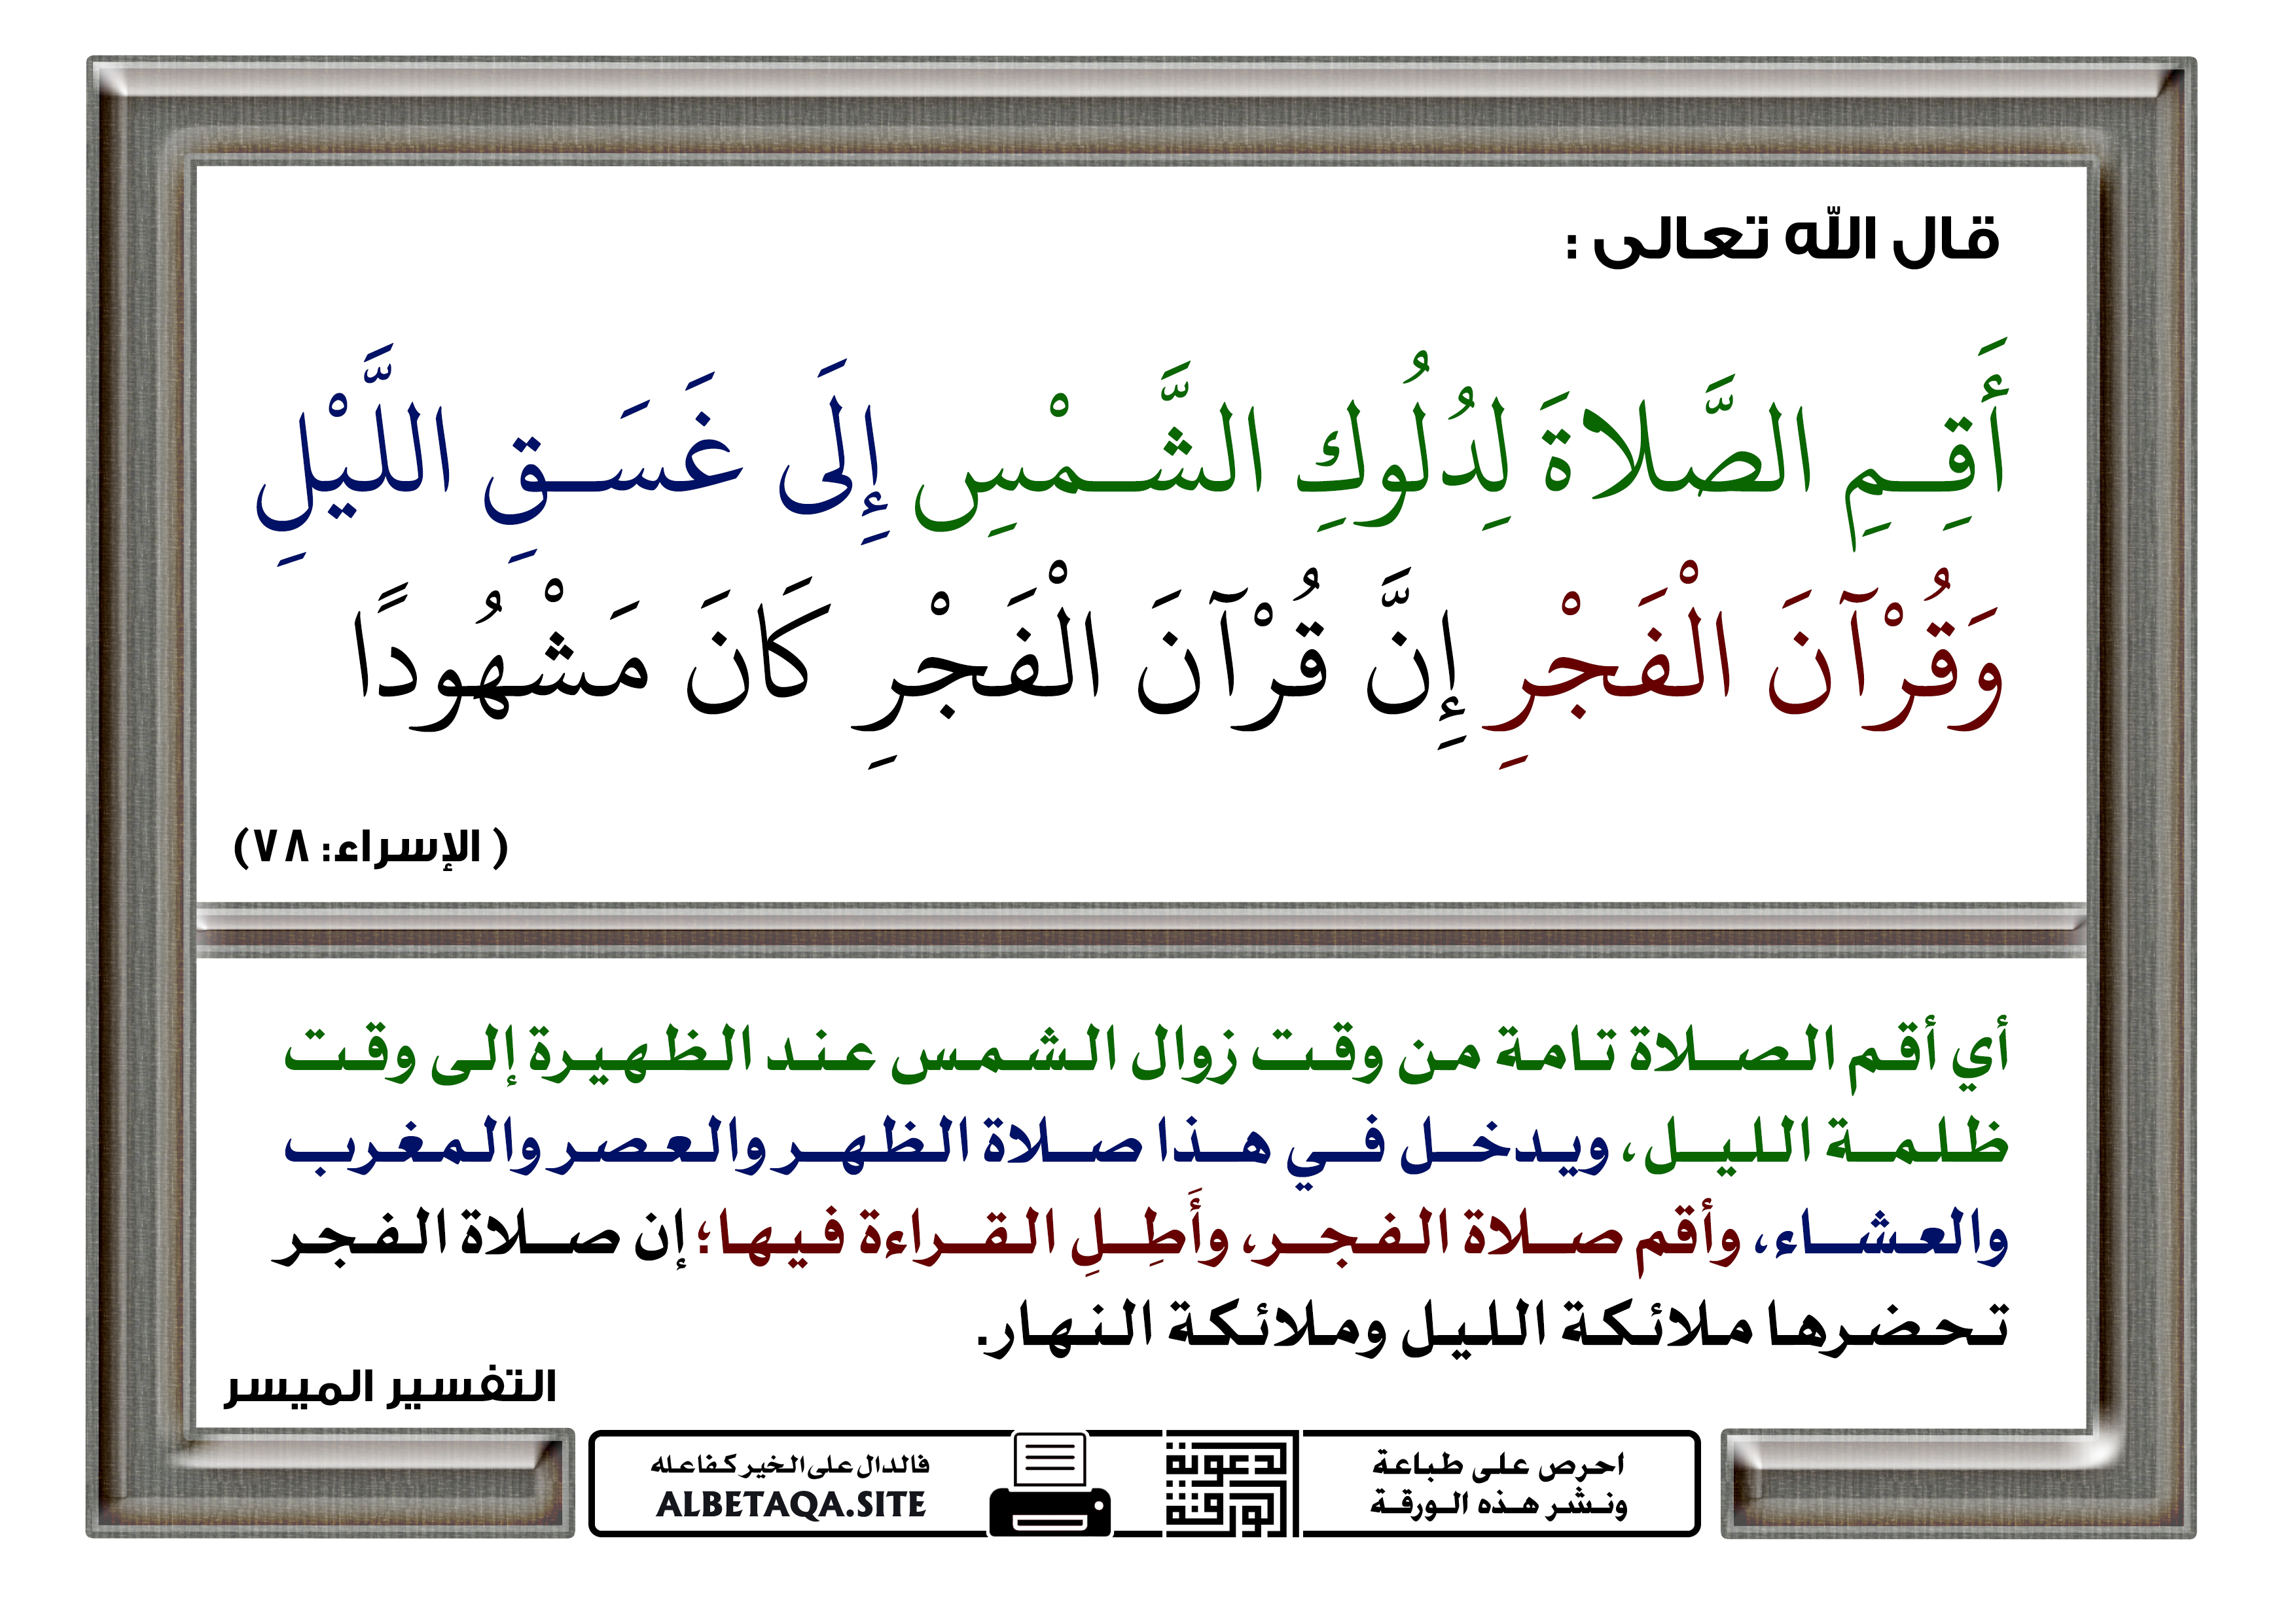 قال الله تعالى :
أَقِمِ الصَّلاةَ لِدُلُوكِ الشَّمْسِ إِلَى غَسَقِ اللَّيْلِ
وَقُرْآنَ الْفَجْرِ إِنَّ قُرْآنَ الْفَجْرِ كَانَ مَشْهُودًا
( الإسراء: ٧٨)
أي أقم الصلاة تامة من وقت زوال الشمس عند الظهيرة إلى وقت
ظلمة الليل، ويدخل في هذا صلاة الظهر والعصر والمغرب
والعشاء، وأقم صلاة الفجر، وأَطِلِ القراءة فيها؛ إن صلاة الفجر
تحضرها ملائكة الليل وملائكة النهار.
التفسير الميسر
احرص على طباعة
ونشر هذه الورقة
الدعوية
الورقة
فالدال على الخير كفاعله
ALBETAQA.SITE